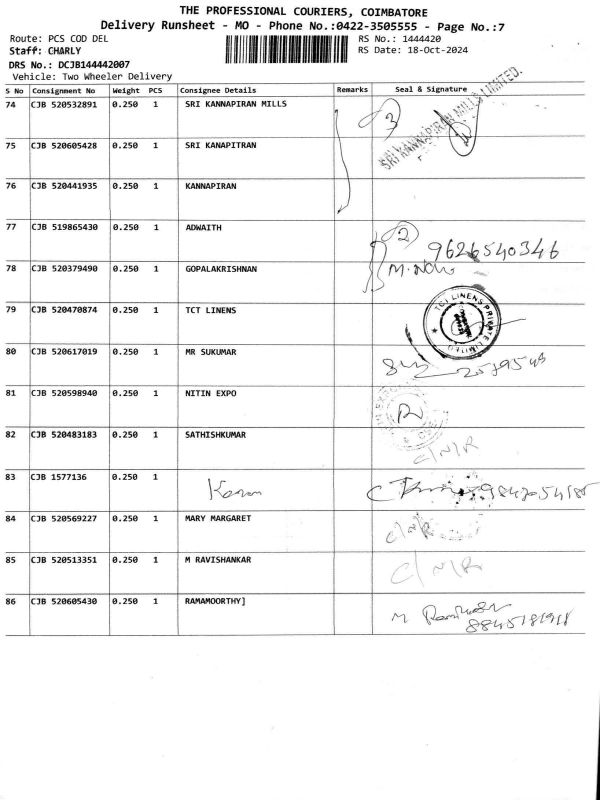 THE PROFESSIONAL COURIERS, COIMBATORE
Delivery Runsheet - MO - Phone No.:0422-3505555 - Page No.:7
Route: PCS COD DEL
RS No.: 1444420
Staff: CHARLY
RS Date: 18-Oct-2024
DRS No.: DCJB144442007
Vehicle: Two Wheeler Delivery
S No Consignment No Weight PCS Consignee Details Remarks Seal & Signature
74 CJB 520532891 0.250 1 SRI KANNAPIRAN MILLS 3 SRI KANNAPIRAN MILLS LIMITED.
75 CJB 520605428 0.250 1 SRI KANAPITRAN
76 CJB 520441935 0.250 1 KANNAPIRAN
77 CJB 519865430 0.250 1 ADWAITH 2 9626540346
78 CJB 520379490 0.250 1 GOPALAKRISHNAN
79 CJB 520470874 0.250 1 TCT LINENS TCT LINENS PRIVATE LIMITED
80 CJB 520617019 0.250 1 MR SUKUMAR
81 CJB 520598940 0.250 1 NITIN EXPO
82 CJB 520483183 0.250 1 SATHISHKUMAR C/N/R
83 CJB 1577136 0.250 1
84 CJB 520569227 0.250 1 MARY MARGARET C/N/R
85 CJB 520513351 0.250 1 M RAVISHANKAR C/N/R
86 CJB 520605430 0.250 1 RAMAMOORTHY] M